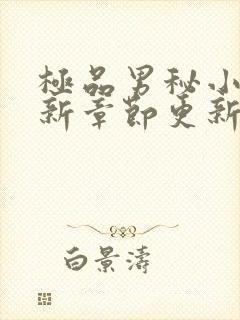 極品男秘小
新章節更新
白景濤